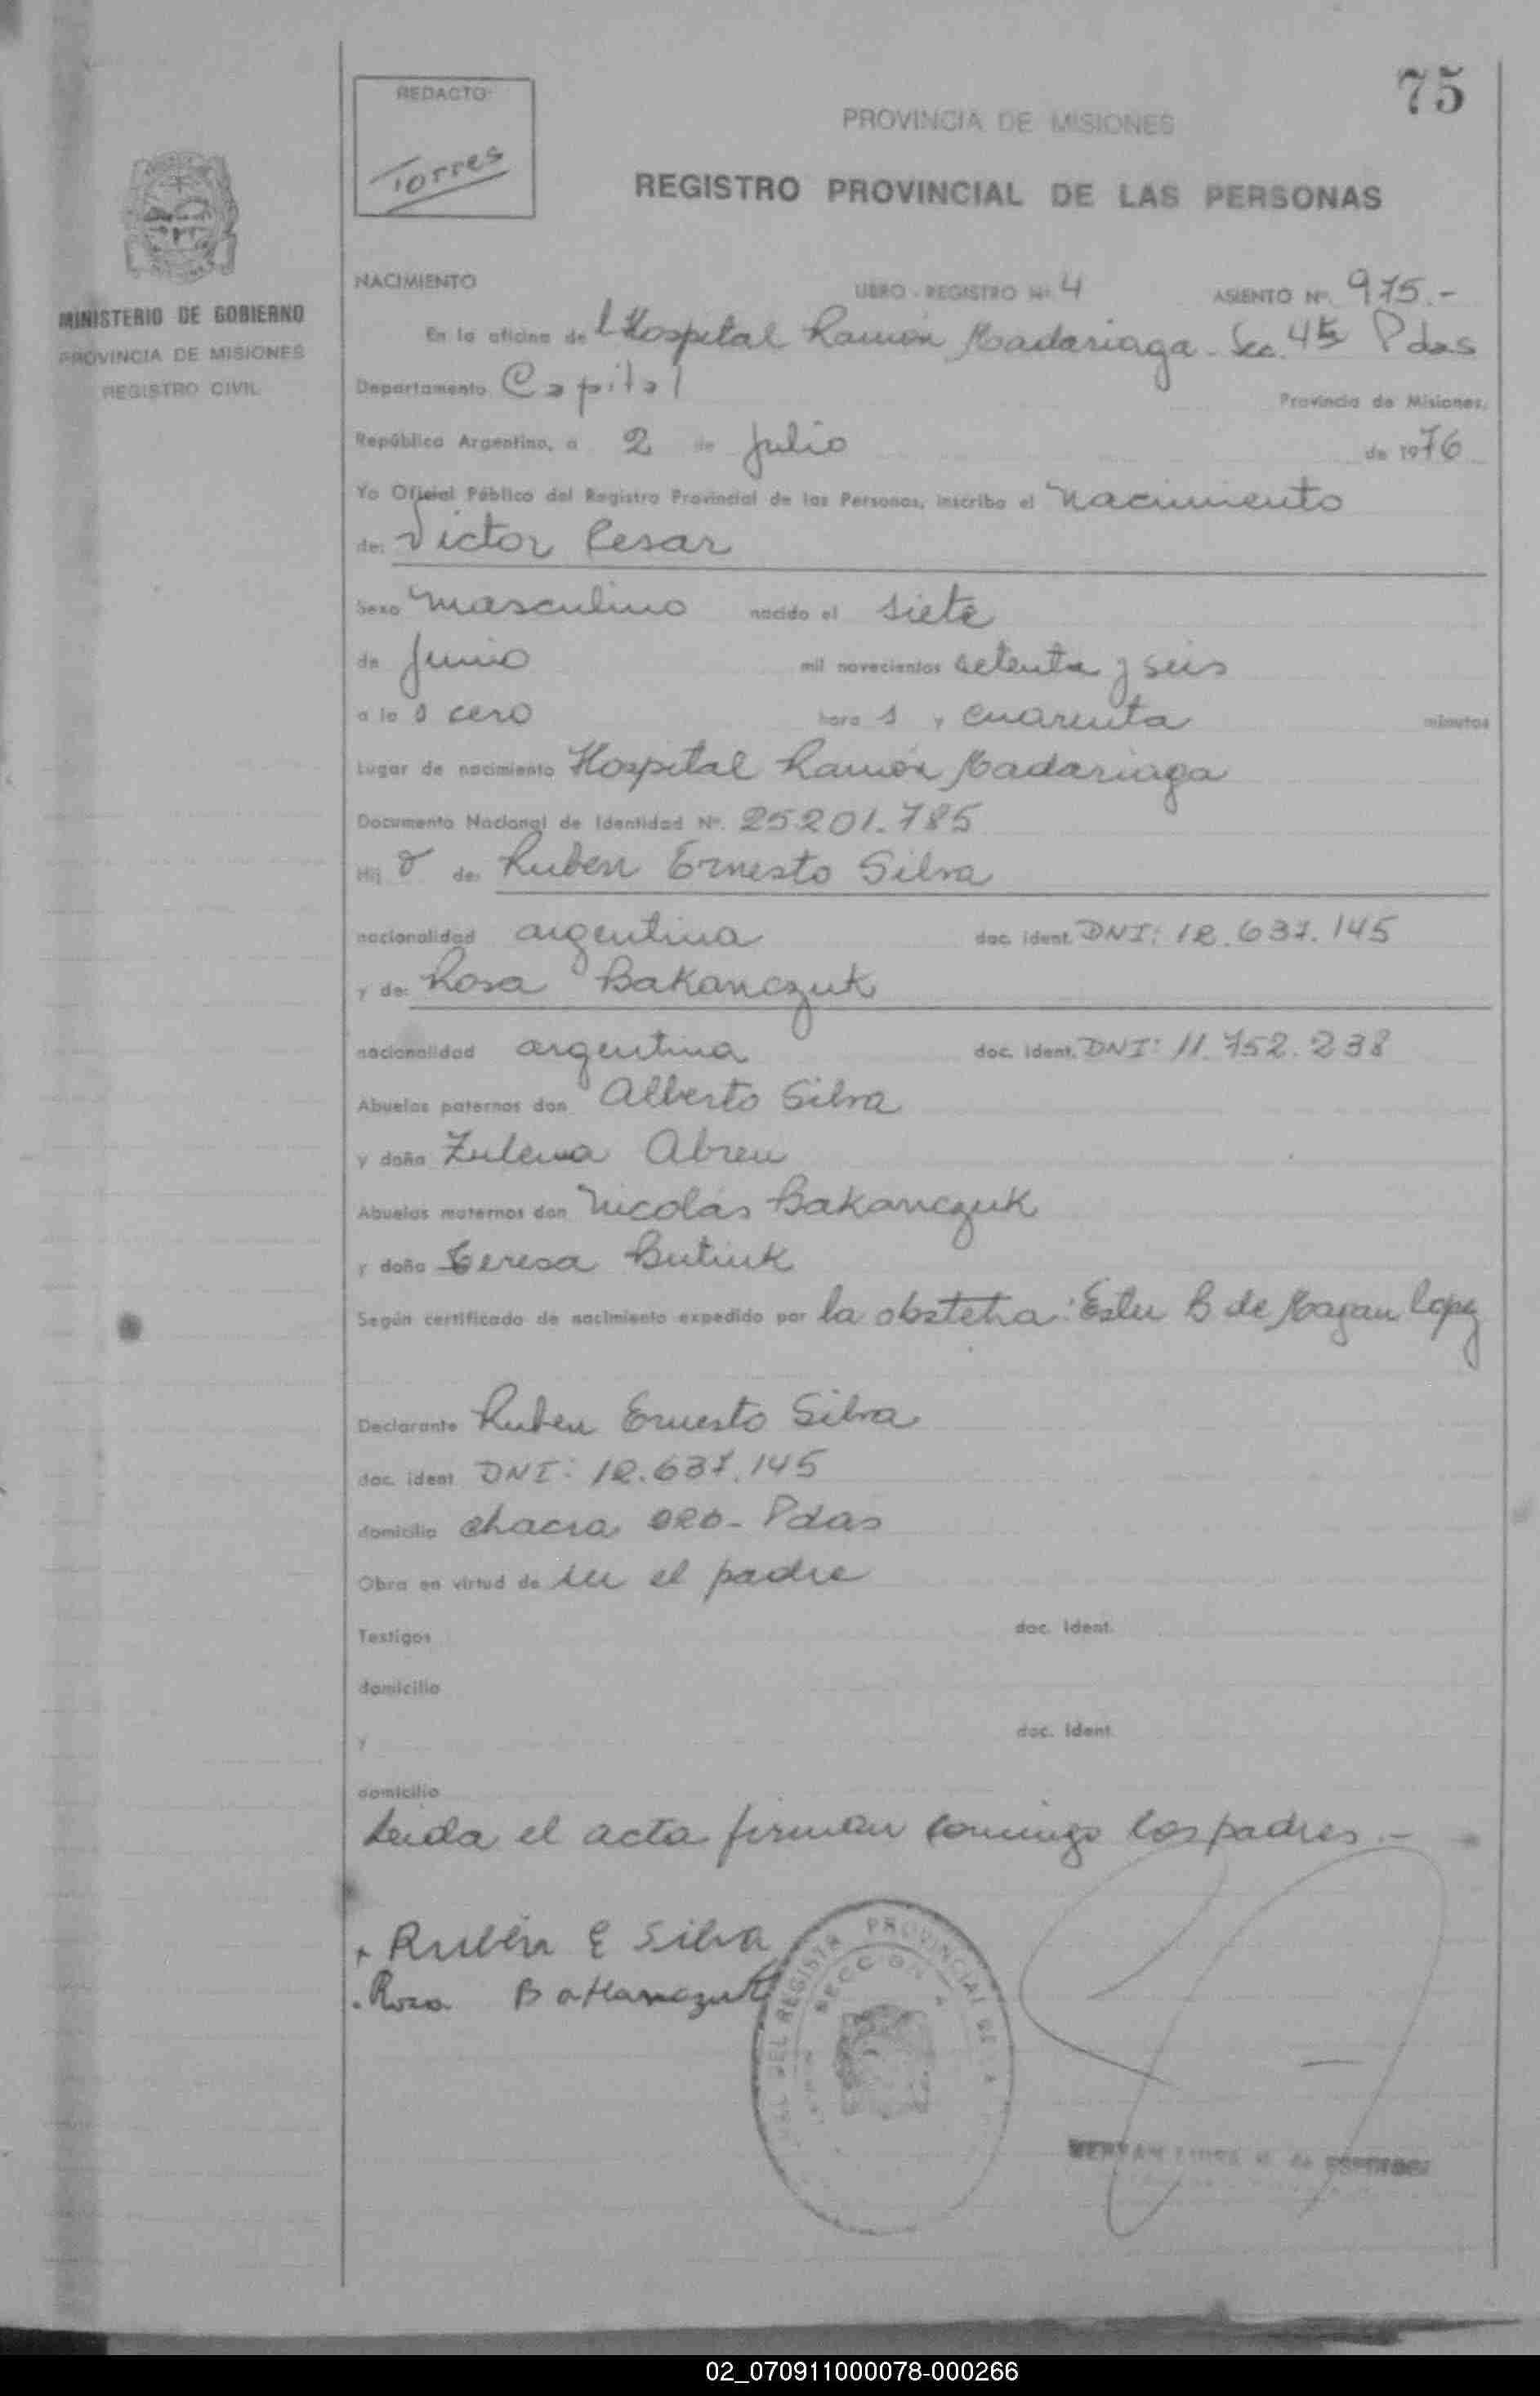 75
REDACTO:
Torres
PROVINCIA DE MISIONES
REGISTRO PROVINCIAL DE LAS PERSONAS
MINISTERIO DE GOBIERNO
PROVINCIA DE MISIONES
REGISTRO CIVIL
NACIMIENTO LIBRO - REGISTRO Nº 4 ASIENTO Nº. 975.-
En la oficina de l Hospital Ramón Madariaga - Sec. 4ta Pdas
Departamento Capital Provincia de Misiones,
República Argentina, a 2 de Julio de 1976
Yo Oficial Público del Registro Provincial de las Personas, inscribo el nacimiento
de: Victor Cesar
Sexo masculino nacido el siete
de Junio mil novecientos setenta y seis
a la s cero hora s y cuarenta minutos
Lugar de nacimiento Hospital Ramón Madariaga
Documento Nacional de Identidad Nº. 25.201.785
Hij o de: Ruben Ernesto Silva
nacionalidad argentina doc. ident. DNI: 12.637.145
y de: Rosa Bakanczuk
nacionalidad argentina doc. ident. DNI: 11.752.238
Abuelos paternos don Alberto Silva
y doña Zulema Abreu
Abuelos maternos don Nicolás Bakanczuk
y doña Teresa Butiuk
Según certificado de nacimiento expedido por la obstetra: Ester B de Magan Lopez
Declarante Ruben Ernesto Silva
doc. ident. DNI: 12.637.145
domicilio chacra 020- Pdas
Obra en virtud de ser el padre
Testigos doc. ident.
domicilio
y doc. ident.
domicilio
Leida el acta firman conmigo los padres.-
Rubén E Silva
Rosa Bakanczuk
DEL REGISTR PROVINCIAL DE
SECCION
02_070911000078-000266